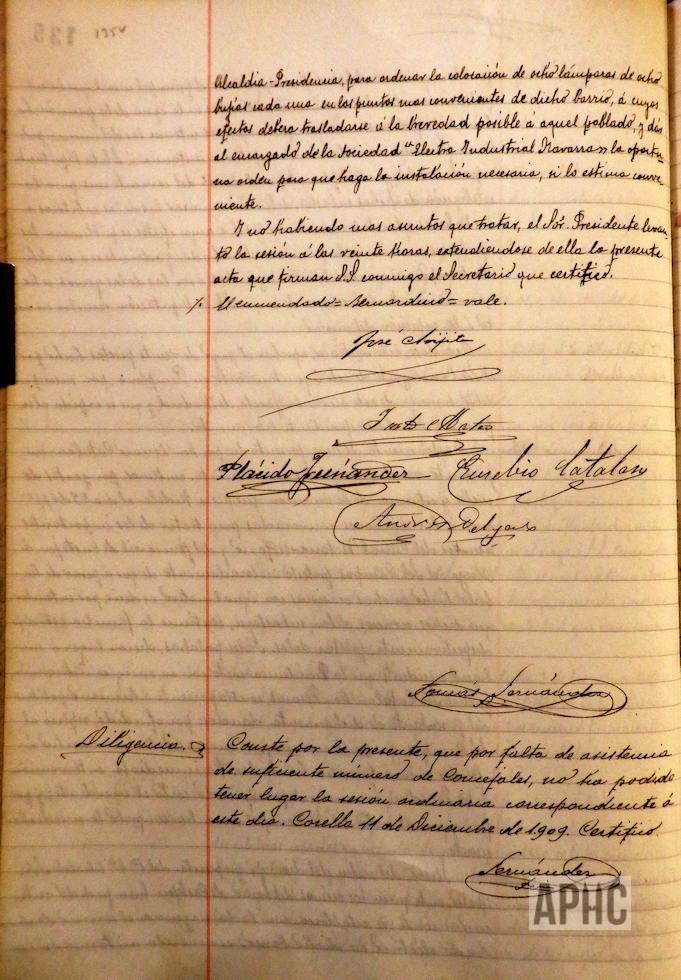 135 135v
Alcaldia-Presidencia, para ordenar la colocación de ocho lámparas de ocho
bujías cada una en los puntos mas convenientes de dicho barrio, á cuyos
efectos debera trasladarse á la brevedad posible á aquel poblado, y dár
al encargado de la Sociedad "Electra Industrial Navarra" la oportu-
na orden para que haga la instalación necesaria, si lo estima conve-
niente.
Y no habiendo mas asuntos que tratar, el Sór. Presidente levan-
tó la sesión á las veinte horas, extendiendose de ella la presente
acta que firman S.S. conmigo el Secretario que certifico.
El enmendado = Bernardino = vale.
José
Justo Mateo
Plácido Fernández Eusebio Catalan
Andrés Delgado
Tomás Fernández
Diligencia.
Conste por la presente, que por falta de asistencia
de suficiente número de Concejales, no ha podido
tener lugar la sesión ordinaria correspondiente á
este dia. Corella 11 de Diciembre de 1.909. Certifico.
Fernández
APHC